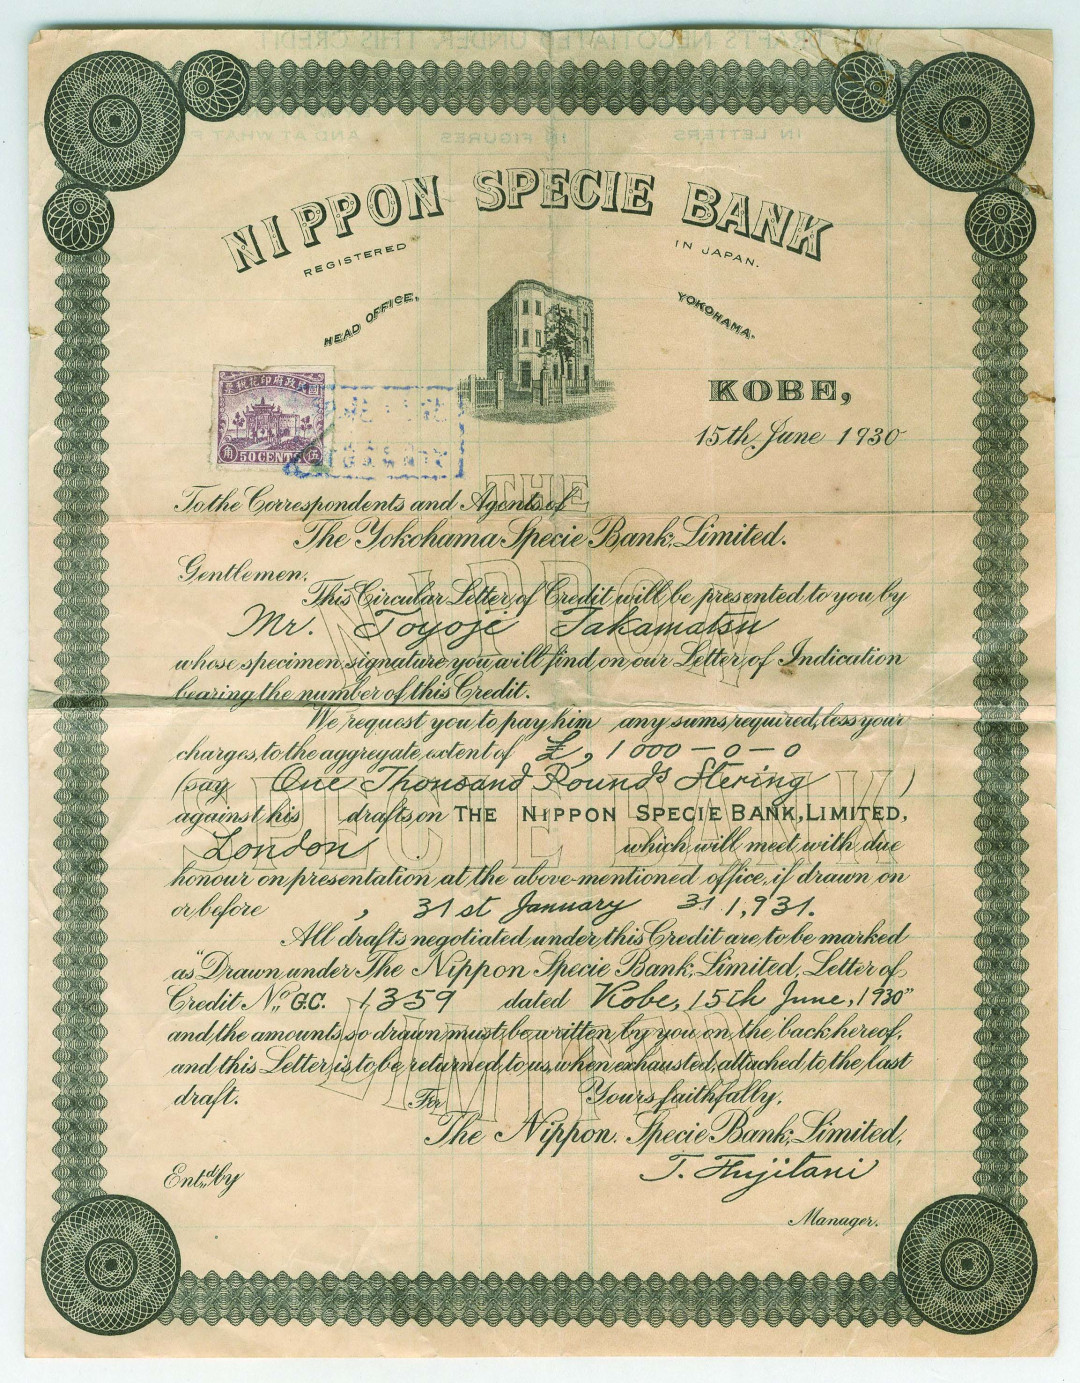 NIPPON SPECIE BANK
REGISTERED IN JAPAN.
HEAD OFFICE, YOKOHAMA.
國民政府印花稅票
角 50 CENTS 伍
KOBE,
15th June 1930
To the Correspondents and Agents of
The Yokohama Specie Bank, Limited.
Gentlemen,
This Circular Letter of Credit will be presented to you by
Mr. Toyoji Takamatsu
whose specimen signature you will find on our Letter of Indication
bearing the number of this Credit.
We request you to pay him any sums required, less your
charges, to the aggregate extent of £, 1000-0-0
(say One Thousand Pounds Stering )
against his drafts on THE NIPPON SPECIE BANK, LIMITED,
London which will meet with due
honour on presentation at the above-mentioned office, if drawn on
or before , 31st January 31 1,931.
All drafts negotiated under this Credit are to be marked
as "Drawn under The Nippon Specie Bank, Limited, Letter of
Credit No. G.C. 1359 dated Kobe, 15th June, 1930"
and the amounts so drawn must be written by you on the back hereof,
and this Letter is to be returned to us, when exhausted, attached to the last
draft.
Yours faithfully,
For
The Nippon Specie Bank, Limited,
T. Fujitani
Ent'd by
Manager.
THE
NIPPON
SPECIE BANK
LIMITED